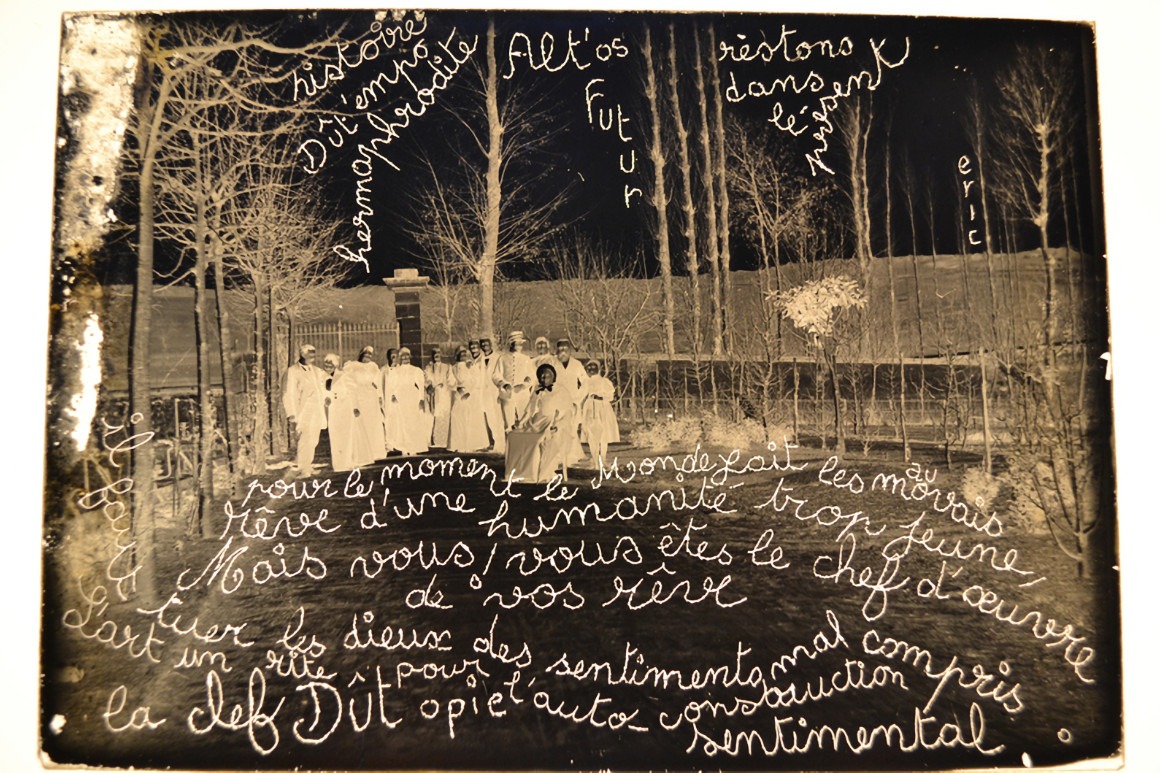 histoire
Dût'empo
hermaphrodite
Alt'os
Futur
rèstons
dans
lé
présent
eric
pour le moment le Monde fait les mõvais
au
rêve d'une humanité trop jeune,
Mais vous, vous êtes le chef d'œuvre
de vos rêve
il faut
tuer les dieux des sentiments mal compris
L'art un rite pour l'auto construction
sentimental
la clef Dût opie